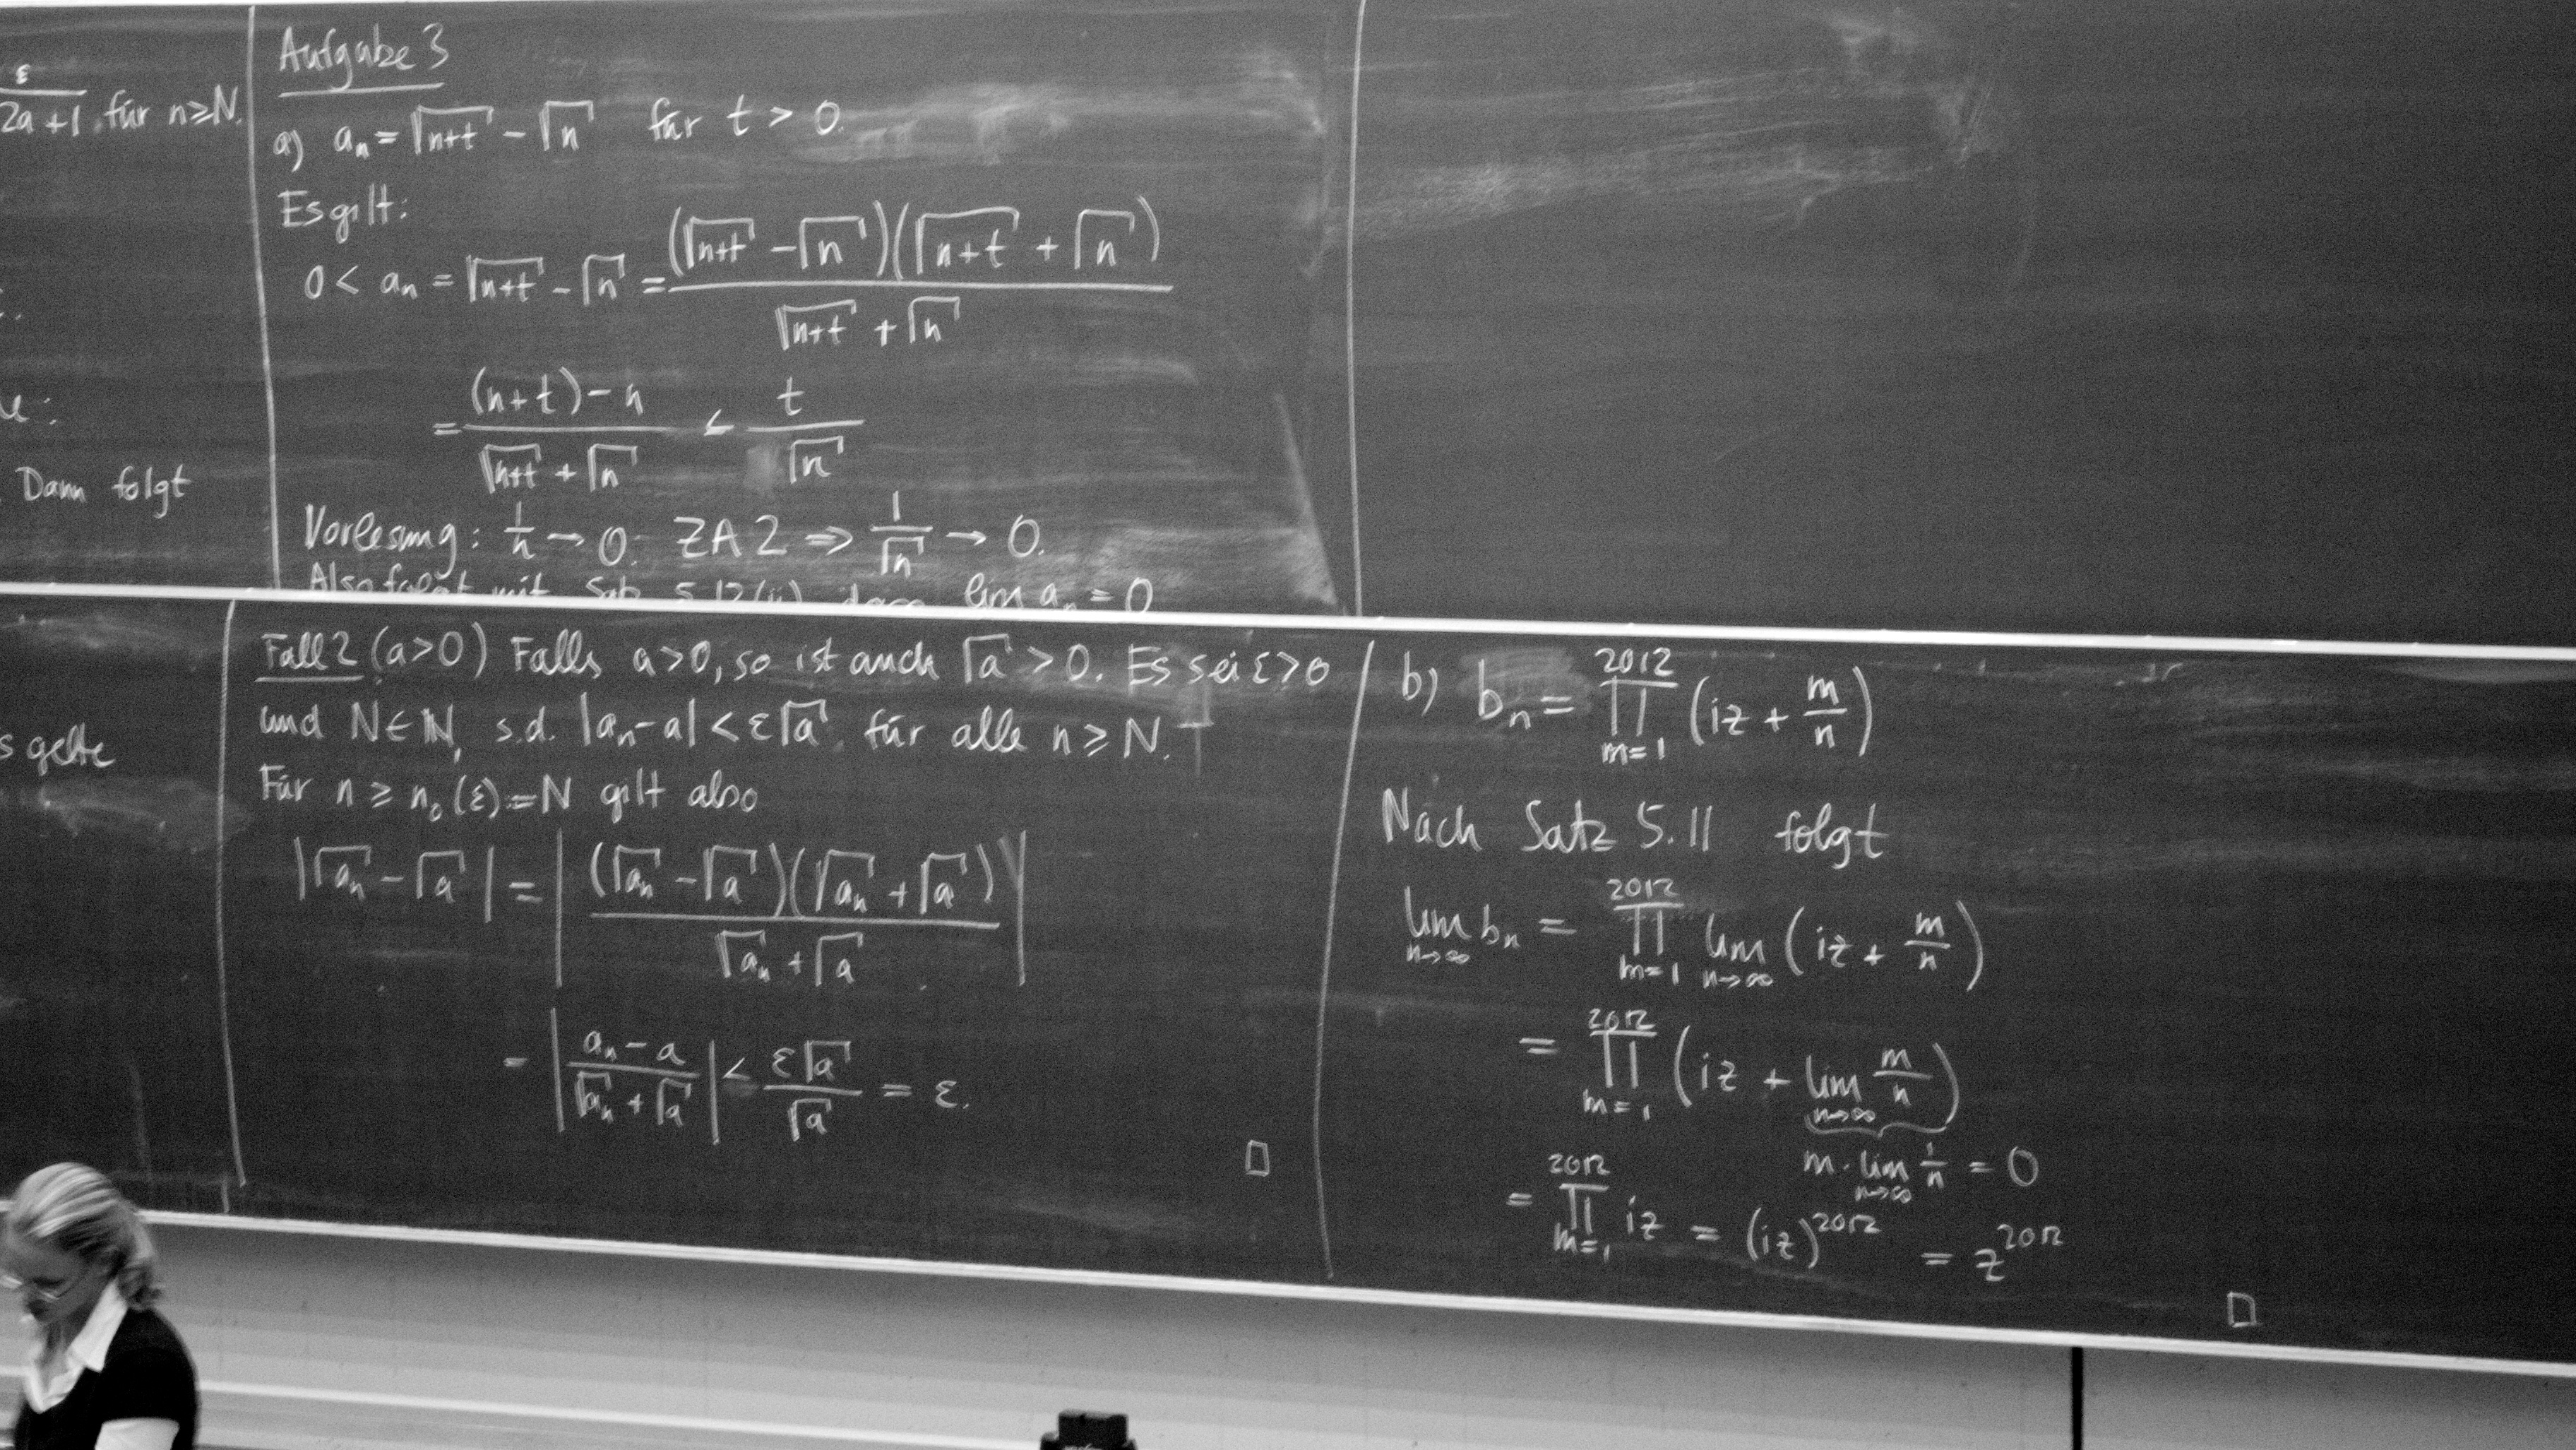 ε
2a+1, für n≥N.
u:
Dann folgt
Aufgabe 3
a) aₙ = √(n+t) - √n für t > 0.
Es gilt:
0 < aₙ = √(n+t) - √n = (√(n+t) - √n)(√(n+t) + √n) / (√(n+t) + √n)
= ((n+t) - n) / (√(n+t) + √n) < t / √n
Vorlesung: 1/n → 0. ZA 2 ⇒ 1/√n → 0.
Also folgt mit Satz 5.12(ii), dass lim aₙ = 0
s gelte
Fall 2 (a>0) Falls a>0, so ist auch √a > 0. Es sei ε>0
und N∈ℕ, s.d. |aₙ-a| < ε√a, für alle n ≥ N.
Für n ≥ n₀(ε):=N gilt also
|√aₙ - √a| = |(√aₙ - √a)(√aₙ + √a) / (√aₙ + √a)|
= |(aₙ - a) / (√aₙ + √a)| < ε√a / √a = ε.
□
b) bₙ = ∏_{m=1}^{2012} (iz + m/n)
Nach Satz 5.11 folgt
lim_{n→∞} bₙ = ∏_{m=1}^{2012} lim_{n→∞} (iz + m/n)
= ∏_{m=1}^{2012} (iz + lim_{n→∞} m/n)
m · lim_{n→∞} 1/n = 0
= ∏_{m=1}^{2012} iz = (iz)^{2012} = z^{2012}
□